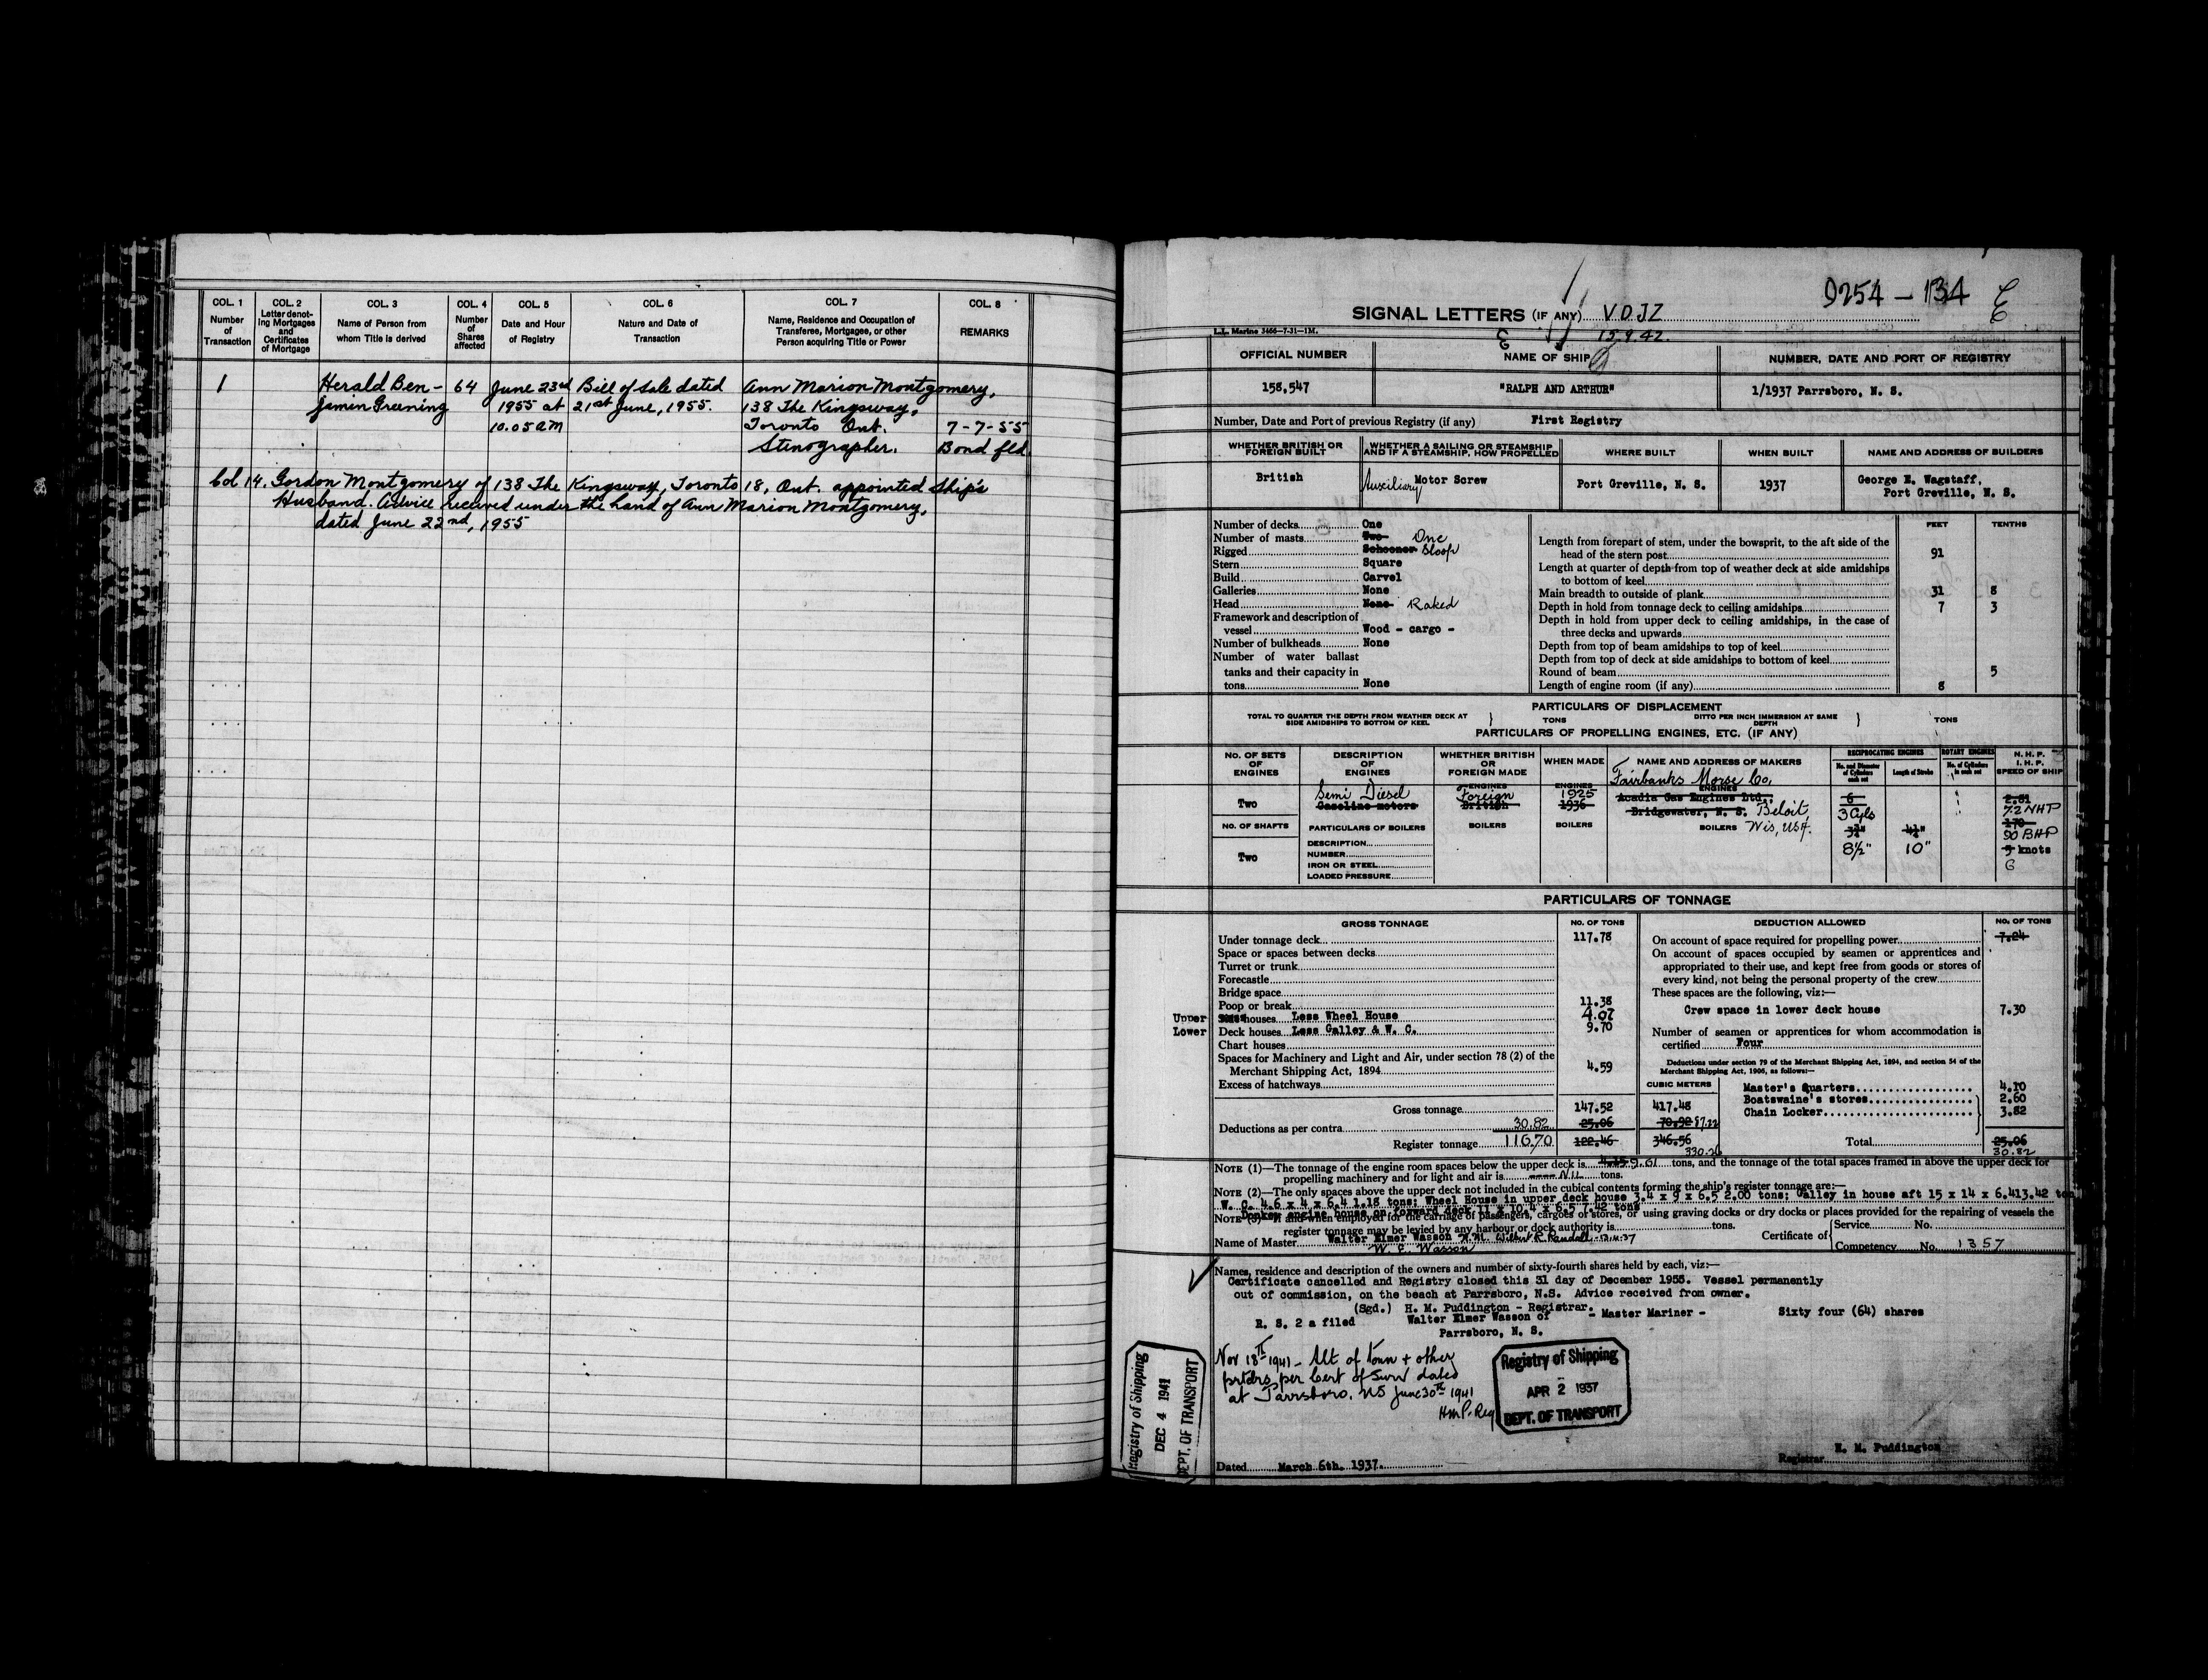 COL. 1 Number of Transaction
COL. 2 Letter denoting Mortgages and Certificates of Mortgage
COL. 3 Name of Person from whom Title is derived
COL. 4 Number of Shares affected
COL. 5 Date and Hour of Registry
COL. 6 Nature and Date of Transaction
COL. 7 Name, Residence and Occupation of Transferee, Mortgagee, or other Person acquiring Title or Power
COL. 8 REMARKS
1 Herald Ben- 64 June 23rd Bill of Sale dated Ann Marion Montgomery,
jamin Greening 1955 at 21st June, 1955. 138 The Kingsway,
10.05 AM Toronto Ont. 7-7-55
Stenographer. Bond fld
Col 14. Gordon Montgomery of 138 The Kingsway, Toronto 18, Ont. appointed Ship's
Husband. Advice received under the hand of Ann Marion Montgomery,
dated June 22nd, 1955
9254 - 134
SIGNAL LETTERS (IF ANY) VOJZ
L.L. Marine 3466—7-31—1M.
15.9.42.
OFFICIAL NUMBER NAME OF SHIP NUMBER, DATE AND PORT OF REGISTRY
158,547 "RALPH AND ARTHUR" 1/1937 Parrsboro, N. S.
Number, Date and Port of previous Registry (if any) First Registry
WHETHER BRITISH OR FOREIGN BUILT WHETHER A SAILING OR STEAMSHIP AND IF A STEAMSHIP, HOW PROPELLED WHERE BUILT WHEN BUILT NAME AND ADDRESS OF BUILDERS
British Auxiliary Motor Screw Port Greville, N. S. 1937 George E. Wagstaff,
Port Greville, N. S.
Number of decks One
Number of masts Two One
Rigged Schooner Sloop
Stern Square
Build Carvel
Galleries None
Head None Raked
Framework and description of
vessel Wood - cargo -
Number of bulkheads None
Number of water ballast
tanks and their capacity in
tons None
FEET TENTHS
Length from forepart of stem, under the bowsprit, to the aft side of the
head of the stern post 91
Length at quarter of depth from top of weather deck at side amidships
to bottom of keel
Main breadth to outside of plank 31 8
Depth in hold from tonnage deck to ceiling amidships 7 3
Depth in hold from upper deck to ceiling amidships, in the case of
three decks and upwards
Depth from top of beam amidships to top of keel
Depth from top of deck at side amidships to bottom of keel
Round of beam 5
Length of engine room (if any) 8
PARTICULARS OF DISPLACEMENT
TOTAL TO QUARTER THE DEPTH FROM WEATHER DECK AT SIDE AMIDSHIPS TO BOTTOM OF KEEL TONS DITTO PER INCH IMMERSION AT SAME DEPTH TONS
PARTICULARS OF PROPELLING ENGINES, ETC. (IF ANY)
NO. OF SETS OF ENGINES DESCRIPTION OF ENGINES WHETHER BRITISH OR FOREIGN MADE WHEN MADE NAME AND ADDRESS OF MAKERS
RECIPROCATING ENGINES ROTARY ENGINES N. H. P. I. H. P. SPEED OF SHIP
No. and Diameter of Cylinders each set Length of Stroke No. of Cylinders in each set
Fairbanks Morse Co,
ENGINES ENGINES ENGINES
Two Semi Diesel Foreign 1925 Acadia Gas Engines Ltd., 6 2.81
Gasoline motors British 1936 Bridgewater, N. S. Beloit, 3 Cyls 72 NHP
NO. OF SHAFTS PARTICULARS OF BOILERS BOILERS BOILERS BOILERS Wis, USA. 170
90 BHP
Two 8½" 10" 9 knots
6
DESCRIPTION
NUMBER
IRON OR STEEL
LOADED PRESSURE
PARTICULARS OF TONNAGE
GROSS TONNAGE NO. OF TONS
Under tonnage deck 117.78
Space or spaces between decks
Turret or trunk
Forecastle
Bridge space
Poop or break 11.38
Upper houses Less Wheel House 4.07
Lower Deck houses Less Galley & W. C. 9.70
Chart houses
Spaces for Machinery and Light and Air, under section 78 (2) of the
Merchant Shipping Act, 1894 4.59
Excess of hatchways
CUBIC METERS
Gross tonnage 147.52 417.48
Deductions as per contra 30.82 25.06 70.92 87.22
Register tonnage 116.70 122.46 346.56
330.26
DEDUCTION ALLOWED NO. OF TONS
On account of space required for propelling power 7.24
On account of spaces occupied by seamen or apprentices and
appropriated to their use, and kept free from goods or stores of
every kind, not being the personal property of the crew
These spaces are the following, viz:—
Crew space in lower deck house 7.30
Number of seamen or apprentices for whom accommodation is
certified Four
Deductions under section 79 of the Merchant Shipping Act, 1894, and section 54 of the
Merchant Shipping Act, 1906, as follows:—
Master's Quarters 4.10
Boatswaine's stores 2.60
Chain Locker 3.82
Total 25.06
30.82
NOTE (1)—The tonnage of the engine room spaces below the upper deck is 9.61 tons, and the tonnage of the total spaces framed in above the upper deck for
propelling machinery and for light and air is NIL tons.
NOTE (2)—The only spaces above the upper deck not included in the cubical contents forming the ship's register tonnage are:—
W. C. 4.6 x 4 x 6.4 1.18 tons; Wheel House in upper deck house 3.4 x 9 x 6.5 2.00 tons; Galley in house aft 15 x 14 x 6.4 13.42 ton
Donkey engine house on forward deck 11 x 10.4 x 6.5 7.42 tons
NOTE (3)—If and when employed for the carriage of passengers, cargoes or stores, or using graving docks or dry docks or places provided for the repairing of vessels the
register tonnage may be levied by any harbour or dock authority is tons.
Name of Master Walter Elmer Wasson Wilbert R. Randall
W. E. Wasson
Certificate of Service No.
Competency No. 1357
Names, residence and description of the owners and number of sixty-fourth shares held by each, viz:—
Certificate cancelled and Registry closed this 31 day of December 1955. Vessel permanently
out of commission, on the beach at Parrsboro, N.S. Advice received from owner.
(Sgd.) H. M. Puddington - Registrar.
R. S. 2 a filed Walter Elmer Wasson of - Master Mariner - Sixty four (64) shares
Parrsboro, N. S.
Nov 18th 1941 - Alt of Tonn + other
prtclrs per Cert of Surv dated
at Parrsboro, NS June 30th 1941
HMP. Reg
Registry of Shipping
APR 2 1937
DEPT. OF TRANSPORT
Registry of Shipping
DEC 4 1941
DEPT. OF TRANSPORT
Dated March 6th. 1937.
H. M. Puddington
Registrar